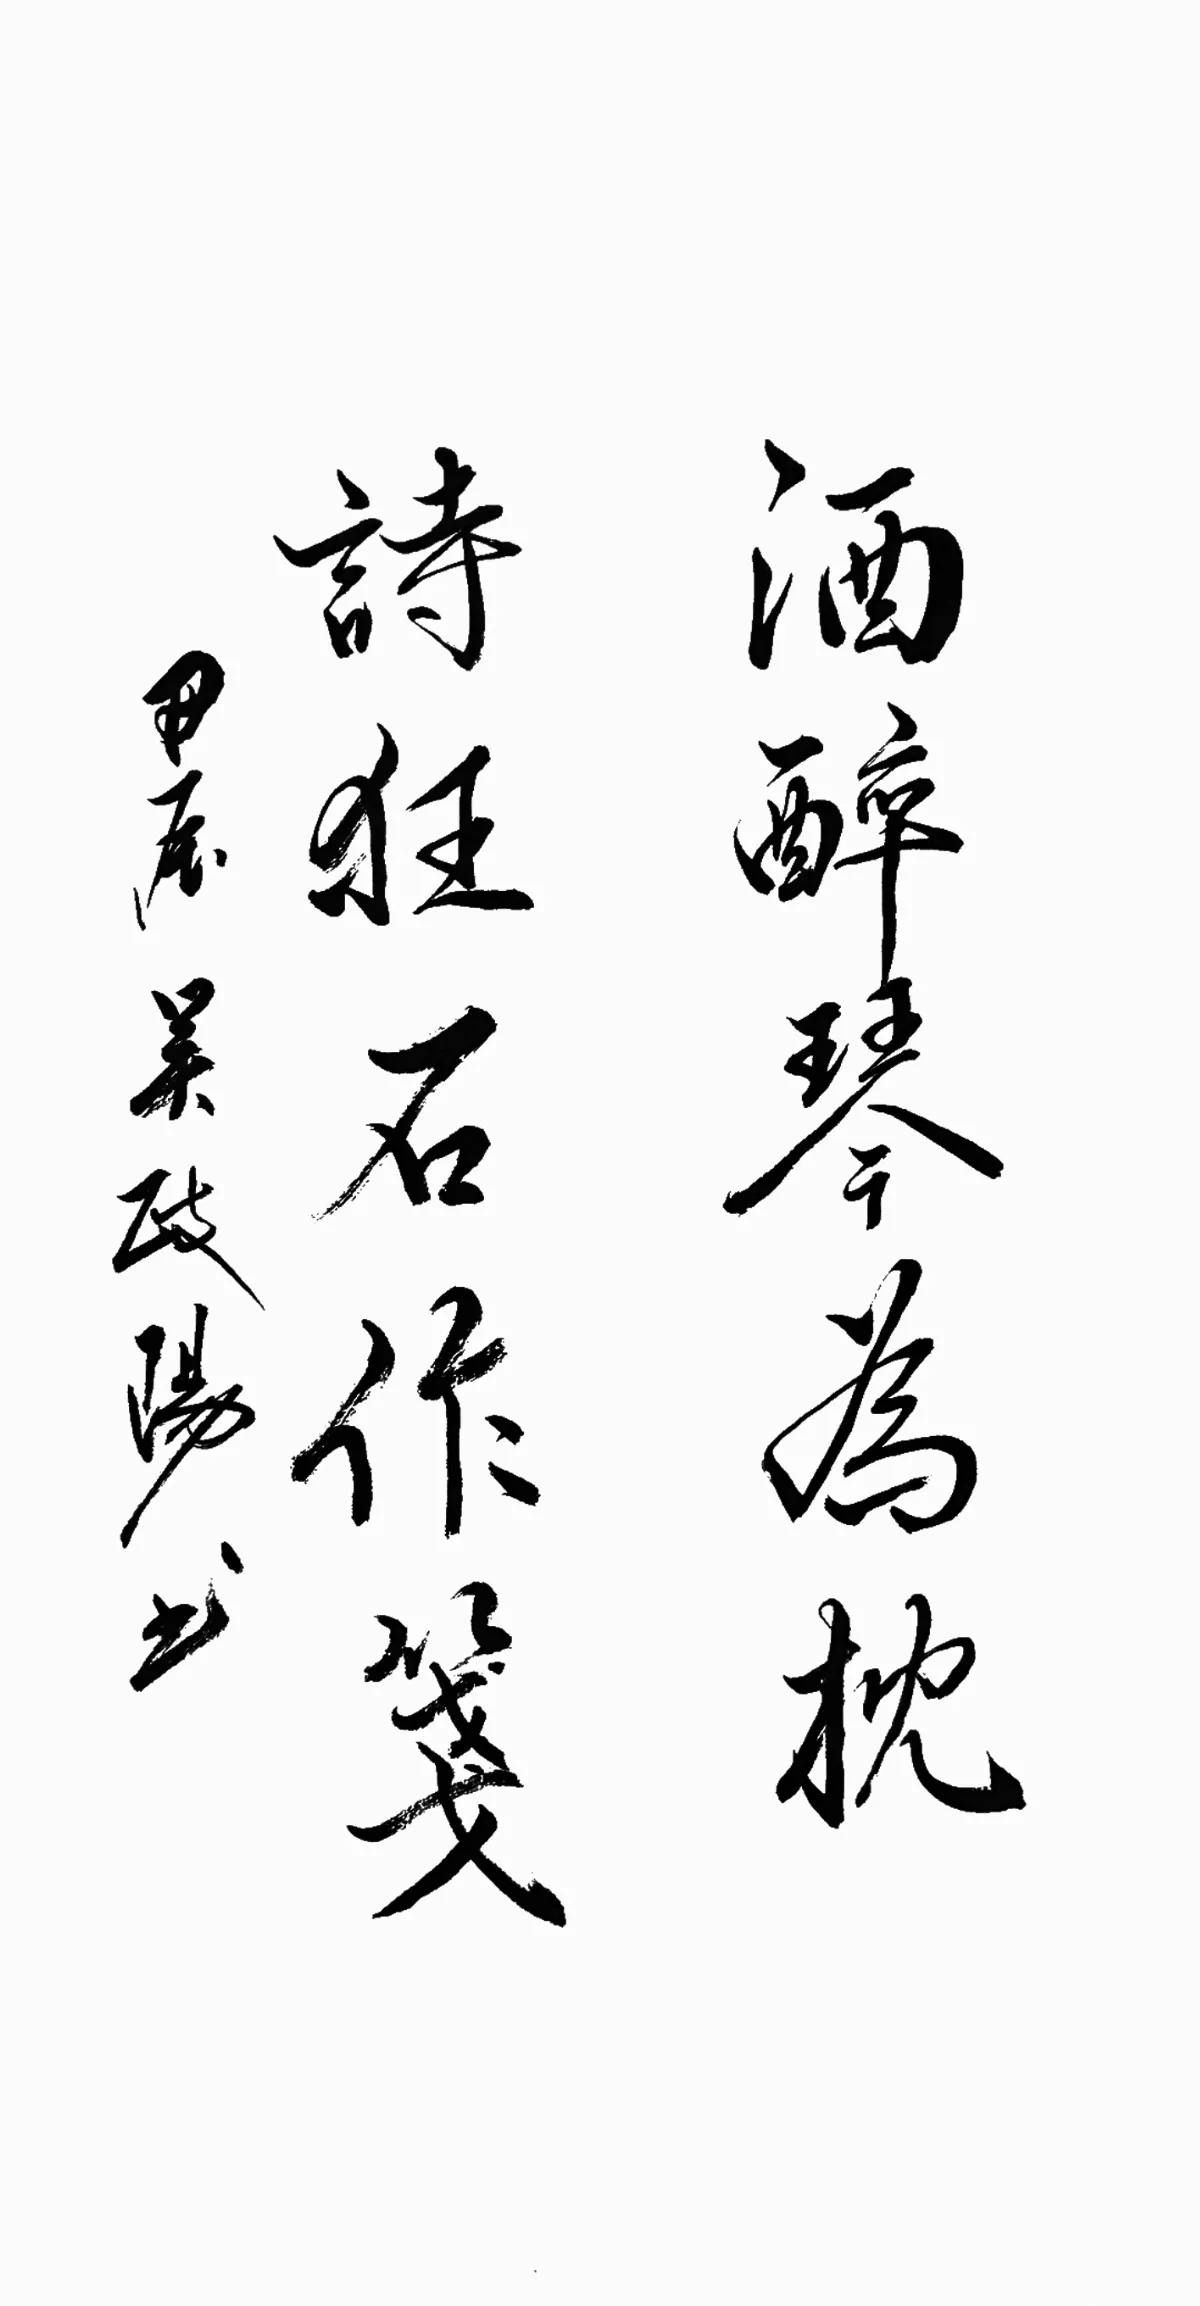 酒醉琴為枕
詩狂石作箋
甲辰吴政陽书